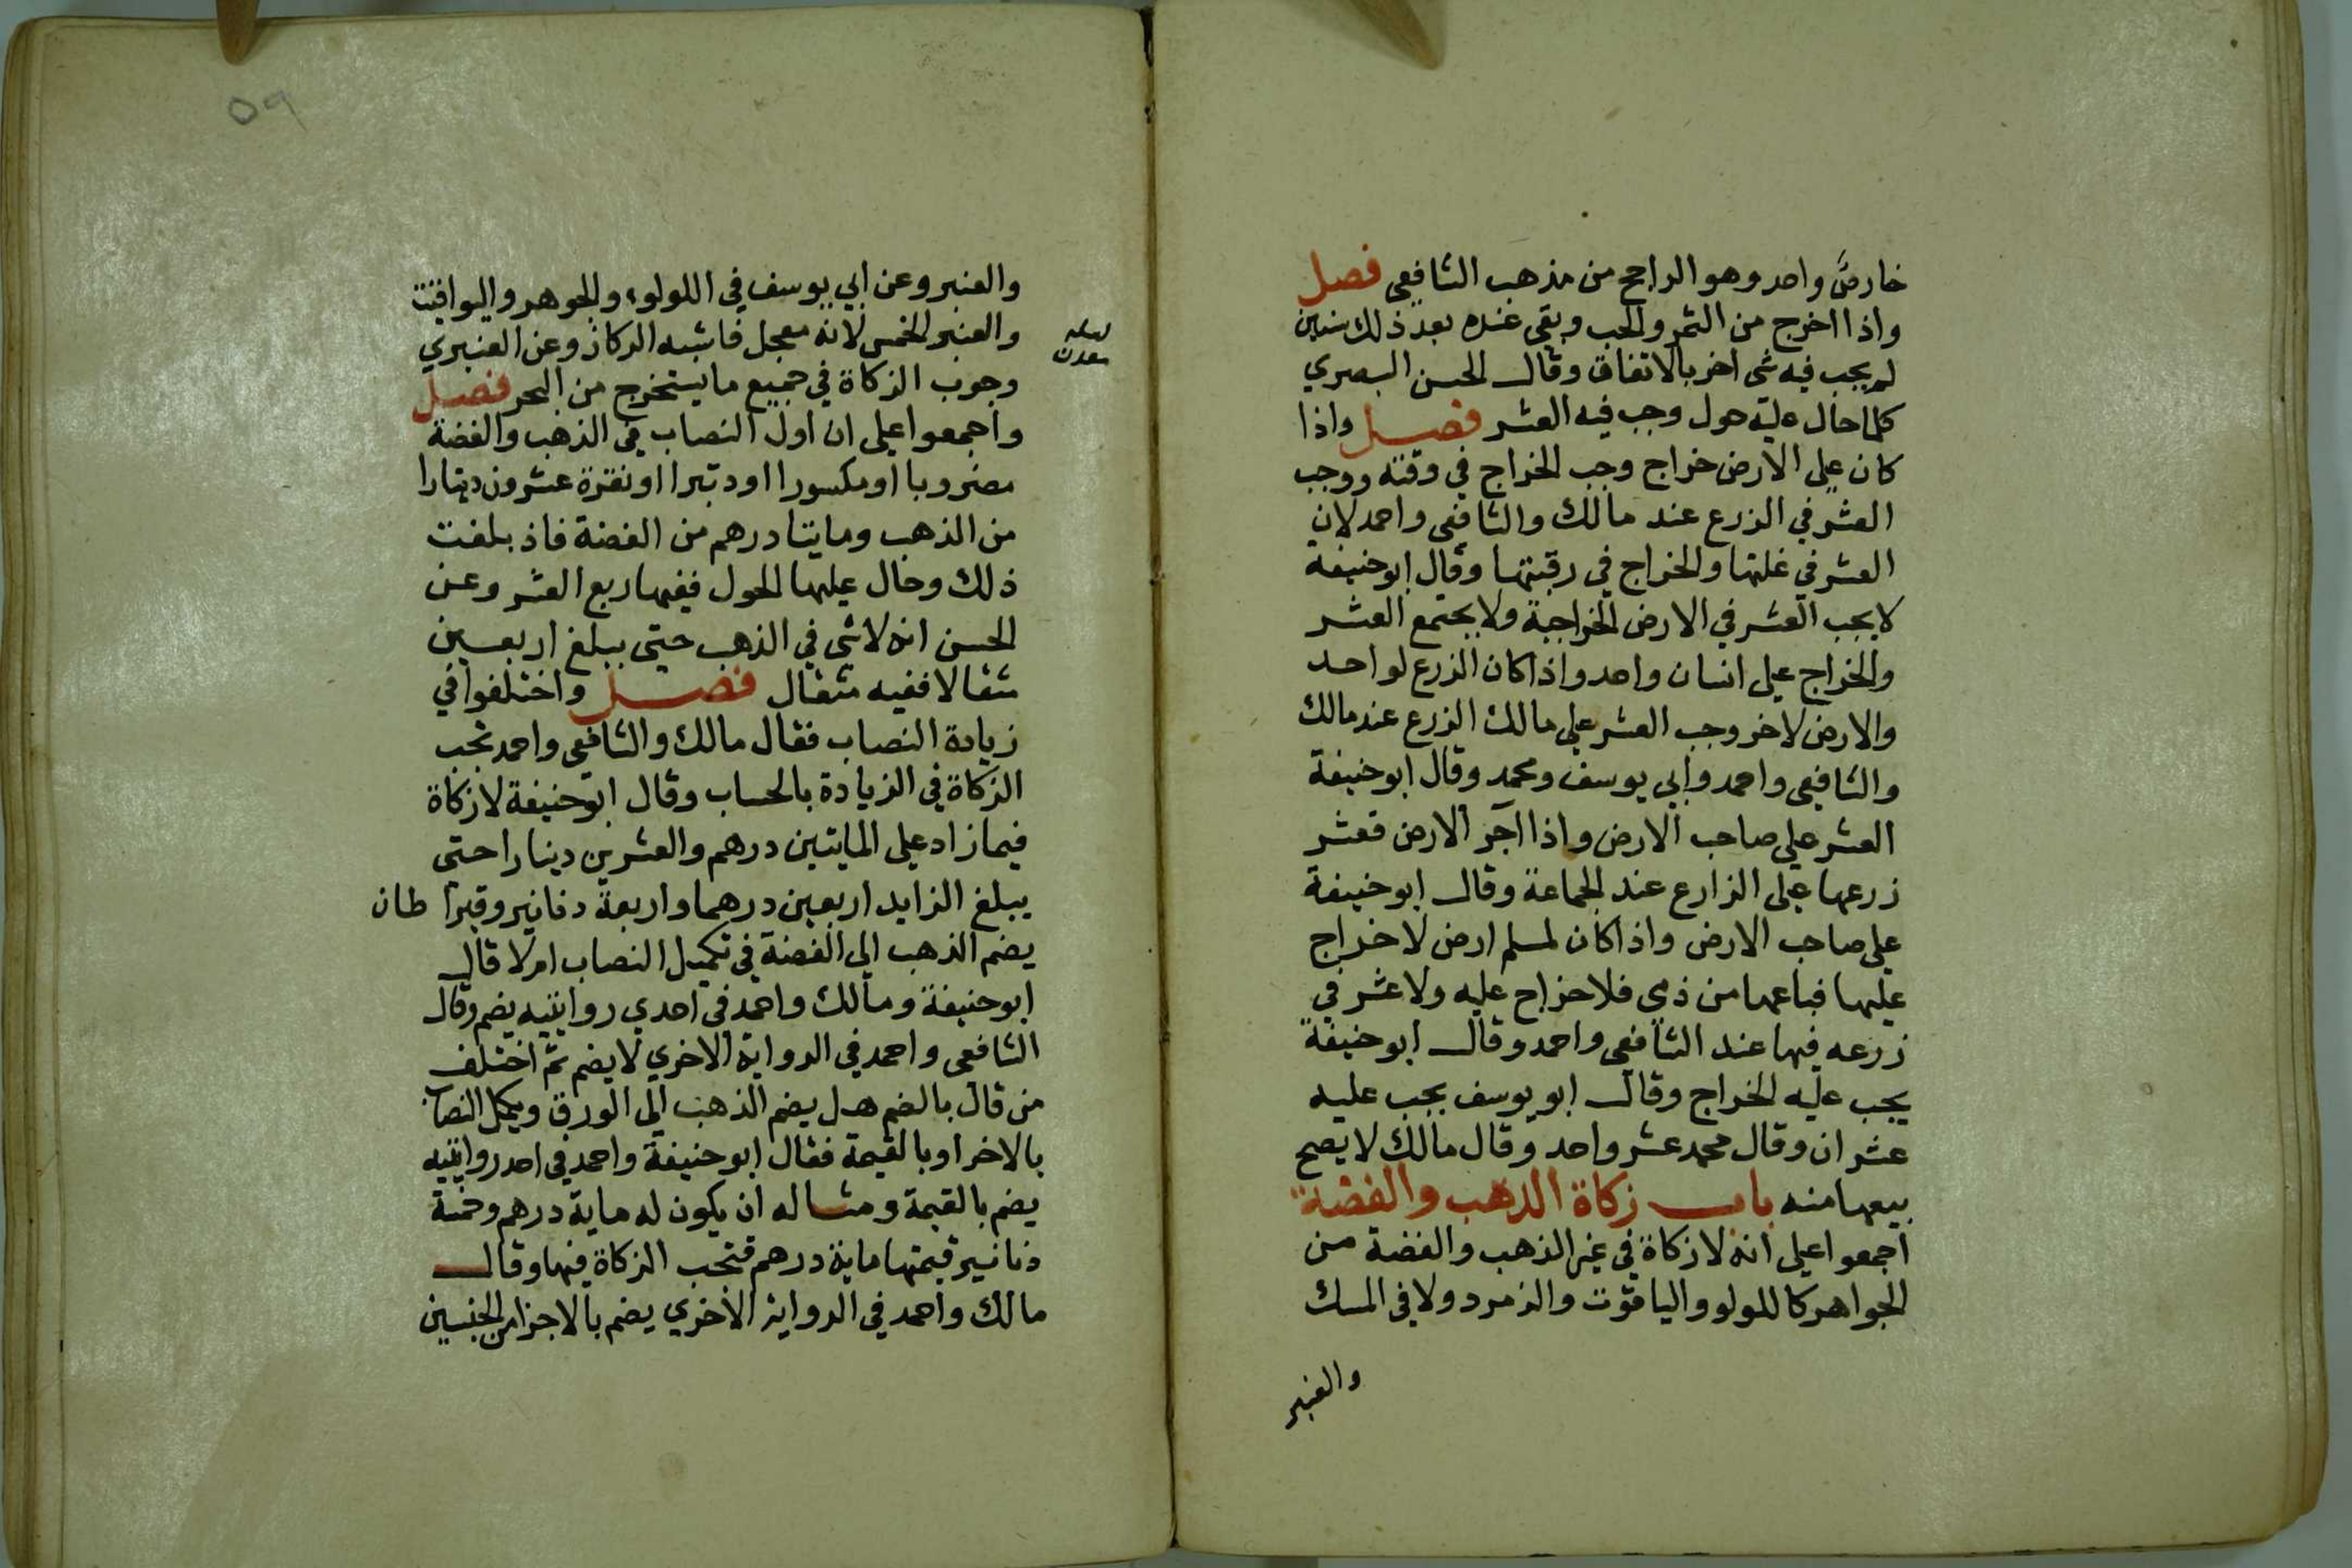 خارص واحد وهو الراجح من مذهب الشافعى فصل
واذا اخرج من التمر والحب وبقى عنده بعد ذلك سنين
لم يجب فيه شى اخر بالاتفاق وقال الحسن البصري
كلما حال عليه حول وجب فيه العشر فصل واذا
كان على الارض خراج وجب الخراج في وقته ووجب
العشر في الزرع عند مالك والشافعى واحمد لان
العشر في غلتها والخراج في رقبتها وقال ابو حنيفة
لا يجب العشر في الارض الخراجية ولا يجتمع العشر
والخراج على انسان واحد واذا كان الزرع لواحد
والارض لاخر وجب العشر على مالك الزرع عند مالك
والشافعى واحمد وابي يوسف ومحمد وقال ابو حنيفة
العشر على صاحب الارض واذا آجر الارض فعشر
زرعها على الزارع عند الجماعة وقال ابو حنيفة
على صاحب الارض واذا كان لمسلم ارض لا خراج
عليها فباعها من ذمى فلا خراج عليه ولا عشر في
زرعه فيها عند الشافعى واحمد وقال ابو حنيفة
يجب عليه الخراج وقال ابو يوسف يجب عليه
عشران وقال محمد عشر واحد وقال مالك لا يصح
بيعها منه باب زكاة الذهب والفضة
اجمعوا على انه لا زكاة في غير الذهب والفضة من
الجواهر كاللولو والياقوت والزمرد ولا في المسك
والعنبر
٥٩
والعنبر وعن ابي يوسف في اللولوء والجوهر واليواقيت
والعنبر الخمس لانه معجل فاشبه الركاز وعن العنبري
معدن
وجوب الزكاة في جميع ما يستخرج من البحر فصل
واجمعوا على ان اول النصاب في الذهب والفضة
مضروبا او مكسورا او دتبرا او نقرة عشرون دينارا
من الذهب ومايتا درهم من الفضة فاذ بلغت
ذلك وحال عليها الحول ففيها ربع العشر وعن
الحسن انه لا شى في الذهب حتى يبلغ اربعين
مثقالا ففيه مثقال فصل واختلفوا في
زيادة النصاب فقال مالك والشافعى واحمد تجب
الزكاة في الزيادة بالحساب وقال ابو حنيفة لا زكاة
فيما زاد على المايتين درهم والعشرين دينارا حتى
يبلغ الزايد اربعين درهما واربعة دنانير وقيرا طان
يضم الذهب الى الفضة في تكميل النصاب ام لا قال
ابو حنيفة ومالك واحمد في احدي روايتيه يضم وقال
الشافعى واحمد في الرواية الاخري لا يضم ثم اختلف
من قال بالضم هل يضم الذهب الى الورق ويكمل النصاب
بالاخر او بالقيمة فقال ابو حنيفة واحمد في احد روايتيه
يضم بالقيمة ومثاله ان يكون له ماية درهم وخمسة
دنانير قيمتها ماية درهم فتجب الزكاة فيها وقال
مالك واحمد في الرواية الاخري يضم بالاجزا من الجنسين